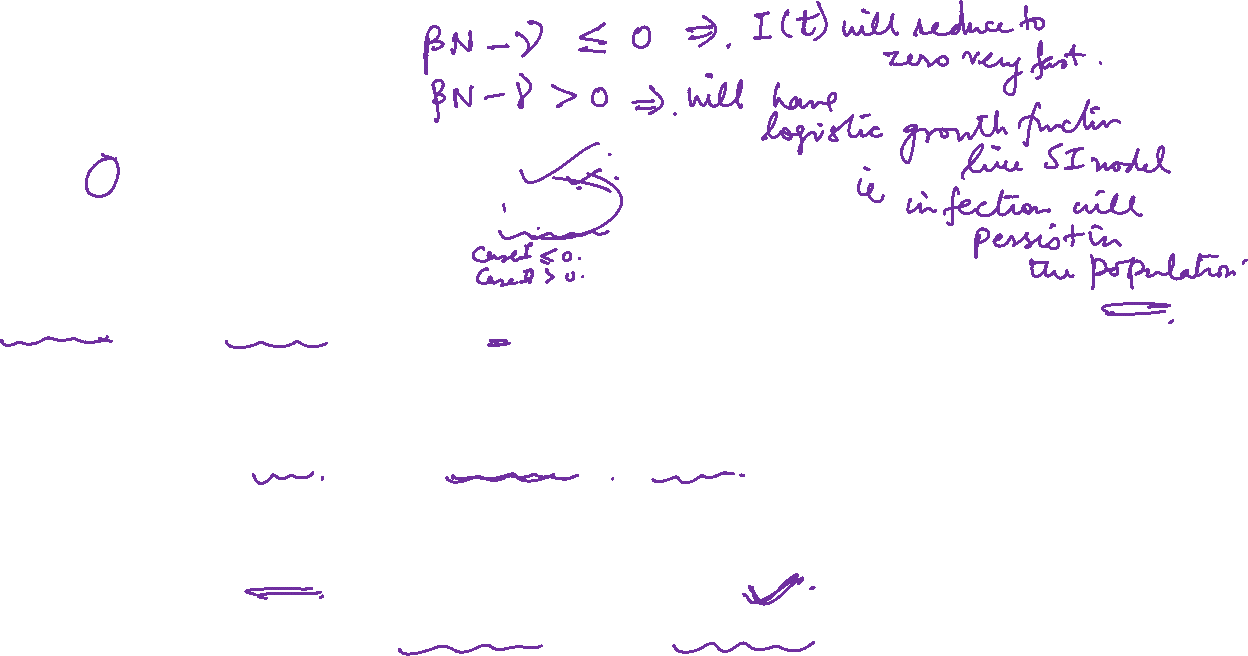 βN - γ ≤ 0 ⇒. I(t) will reduce to
zero very fast.
βN - γ > 0 ⇒. will have
logistic growth functin
like SI model
ie infection will
persist in
the population.
Case I ≤ 0.
Case II > 0.